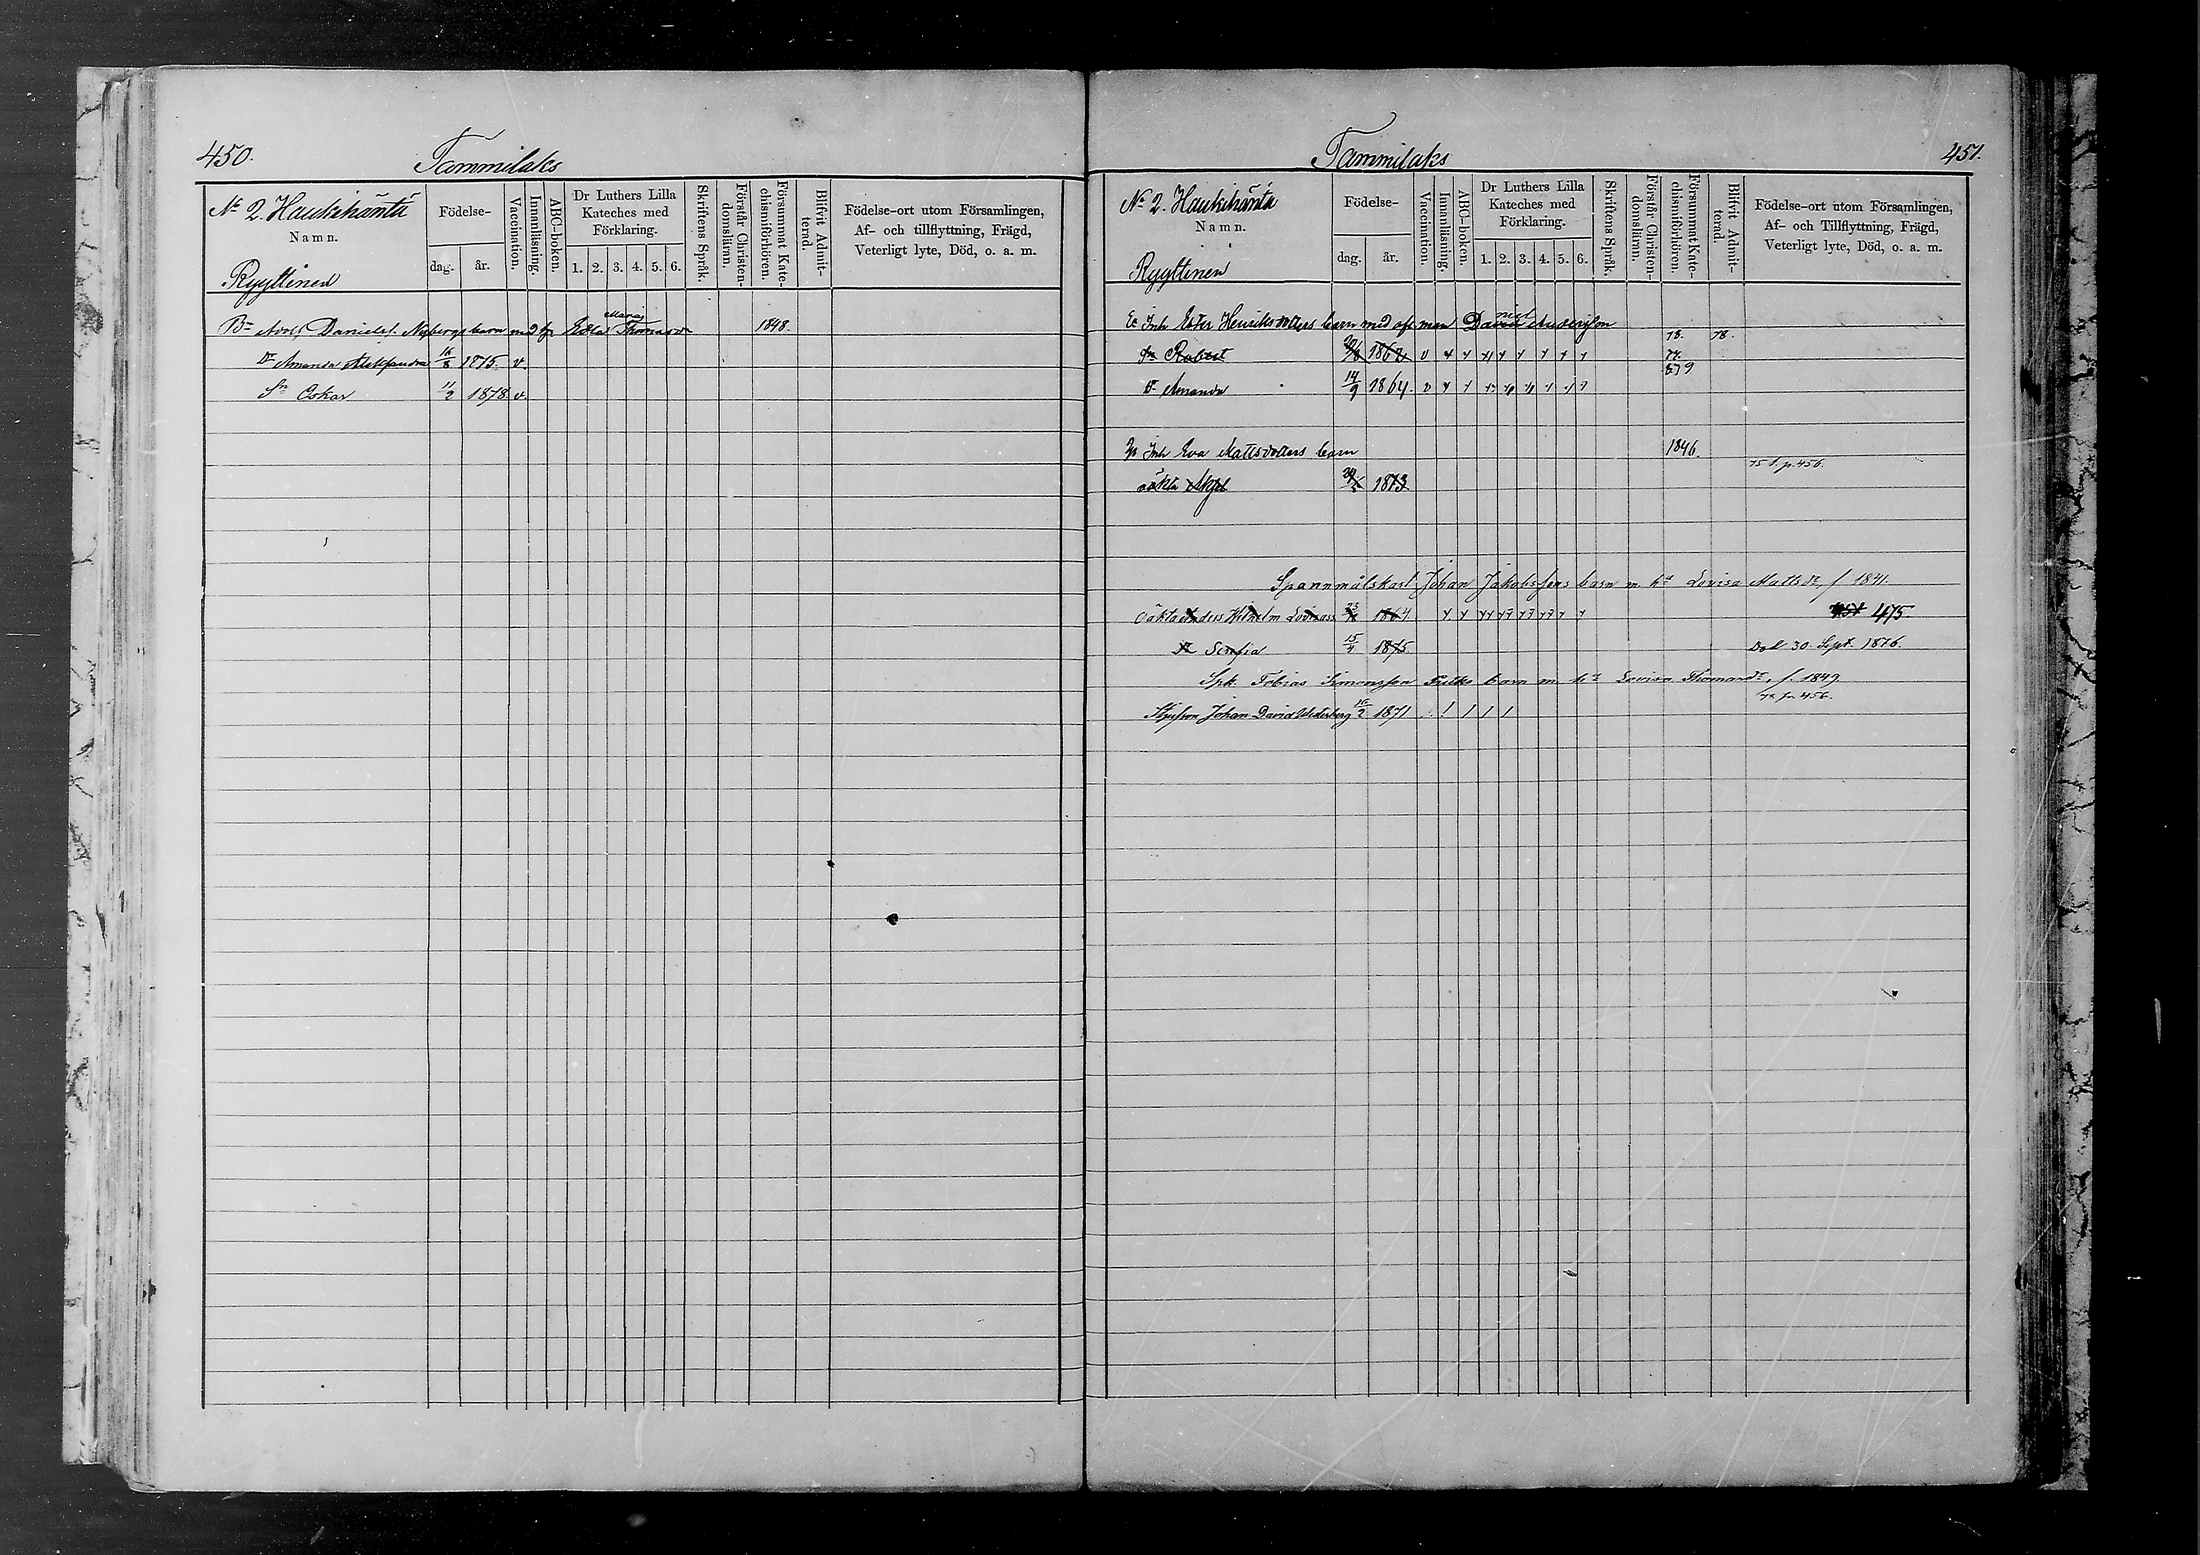 450.
Tammilaks
No 2. Haukihäntä
Namn.
Ryyttinen
Födelse-
dag.
år.
Vaccination.
Innanläsning.
ABC-boken.
Dr Luthers Lilla
Kateches med
Förklaring.
1. 2. 3. 4. 5. 6.
Skriftens Språk.
Förstår Christen-
domsläran.
Försummat Kate-
chismiförhören.
Blifvit Admit-
terad.
Födelse-ort utom Församlingen,
Af- och tillflyttning, Frägd,
Veterligt lyte, Död, o. a. m.
Adolf Danielss. Nybergs barn med h Edla Marias Thomasdr 1848.
Dr Amanda Aleksandra 16/8 1875. v.
Sn Oskar 11/2 1878. v.
Tammilaks
451.
No 2. Haukihäntä
Namn.
Ryyttinen
Födelse-
dag.
år.
Vaccination.
Innanläsning.
ABC-boken.
Dr Luthers Lilla
Kateches med
Förklaring.
1. 2. 3. 4. 5. 6.
Skriftens Språk.
Förstår Christen-
domsläran.
Försummat Kate-
chismiförhören.
Blifvit Admit-
terad.
Födelse-ort utom Församlingen,
Af- och Tillflyttning, Frägd,
Veterligt lyte, Död, o. a. m.
Enk Inh Ester Henriksdotters barn med afl man David Andersson
78. 78.
Sn Robert 1862 v
77.
879
Dr Amanda 14/9 1864. v
Inh Eva Mattsdotters barn 1846.
p. 456.
oäkta Axel 1873
Spannmålskarl Johan Jakobssons barn m. hu Lovisa Mattsdr, f 1841.
oäkta Anders Wilhelm Lovisass 23 1864. 475.
Dr Serafia 15/4 1875. Död 30. Sept. 1876.
Spk. Tobias Simonsson barn m. hu Lovisa Thomasdr, f. 1849.
p. 456.
Styfson Johan David Westerberg 10/2 1871